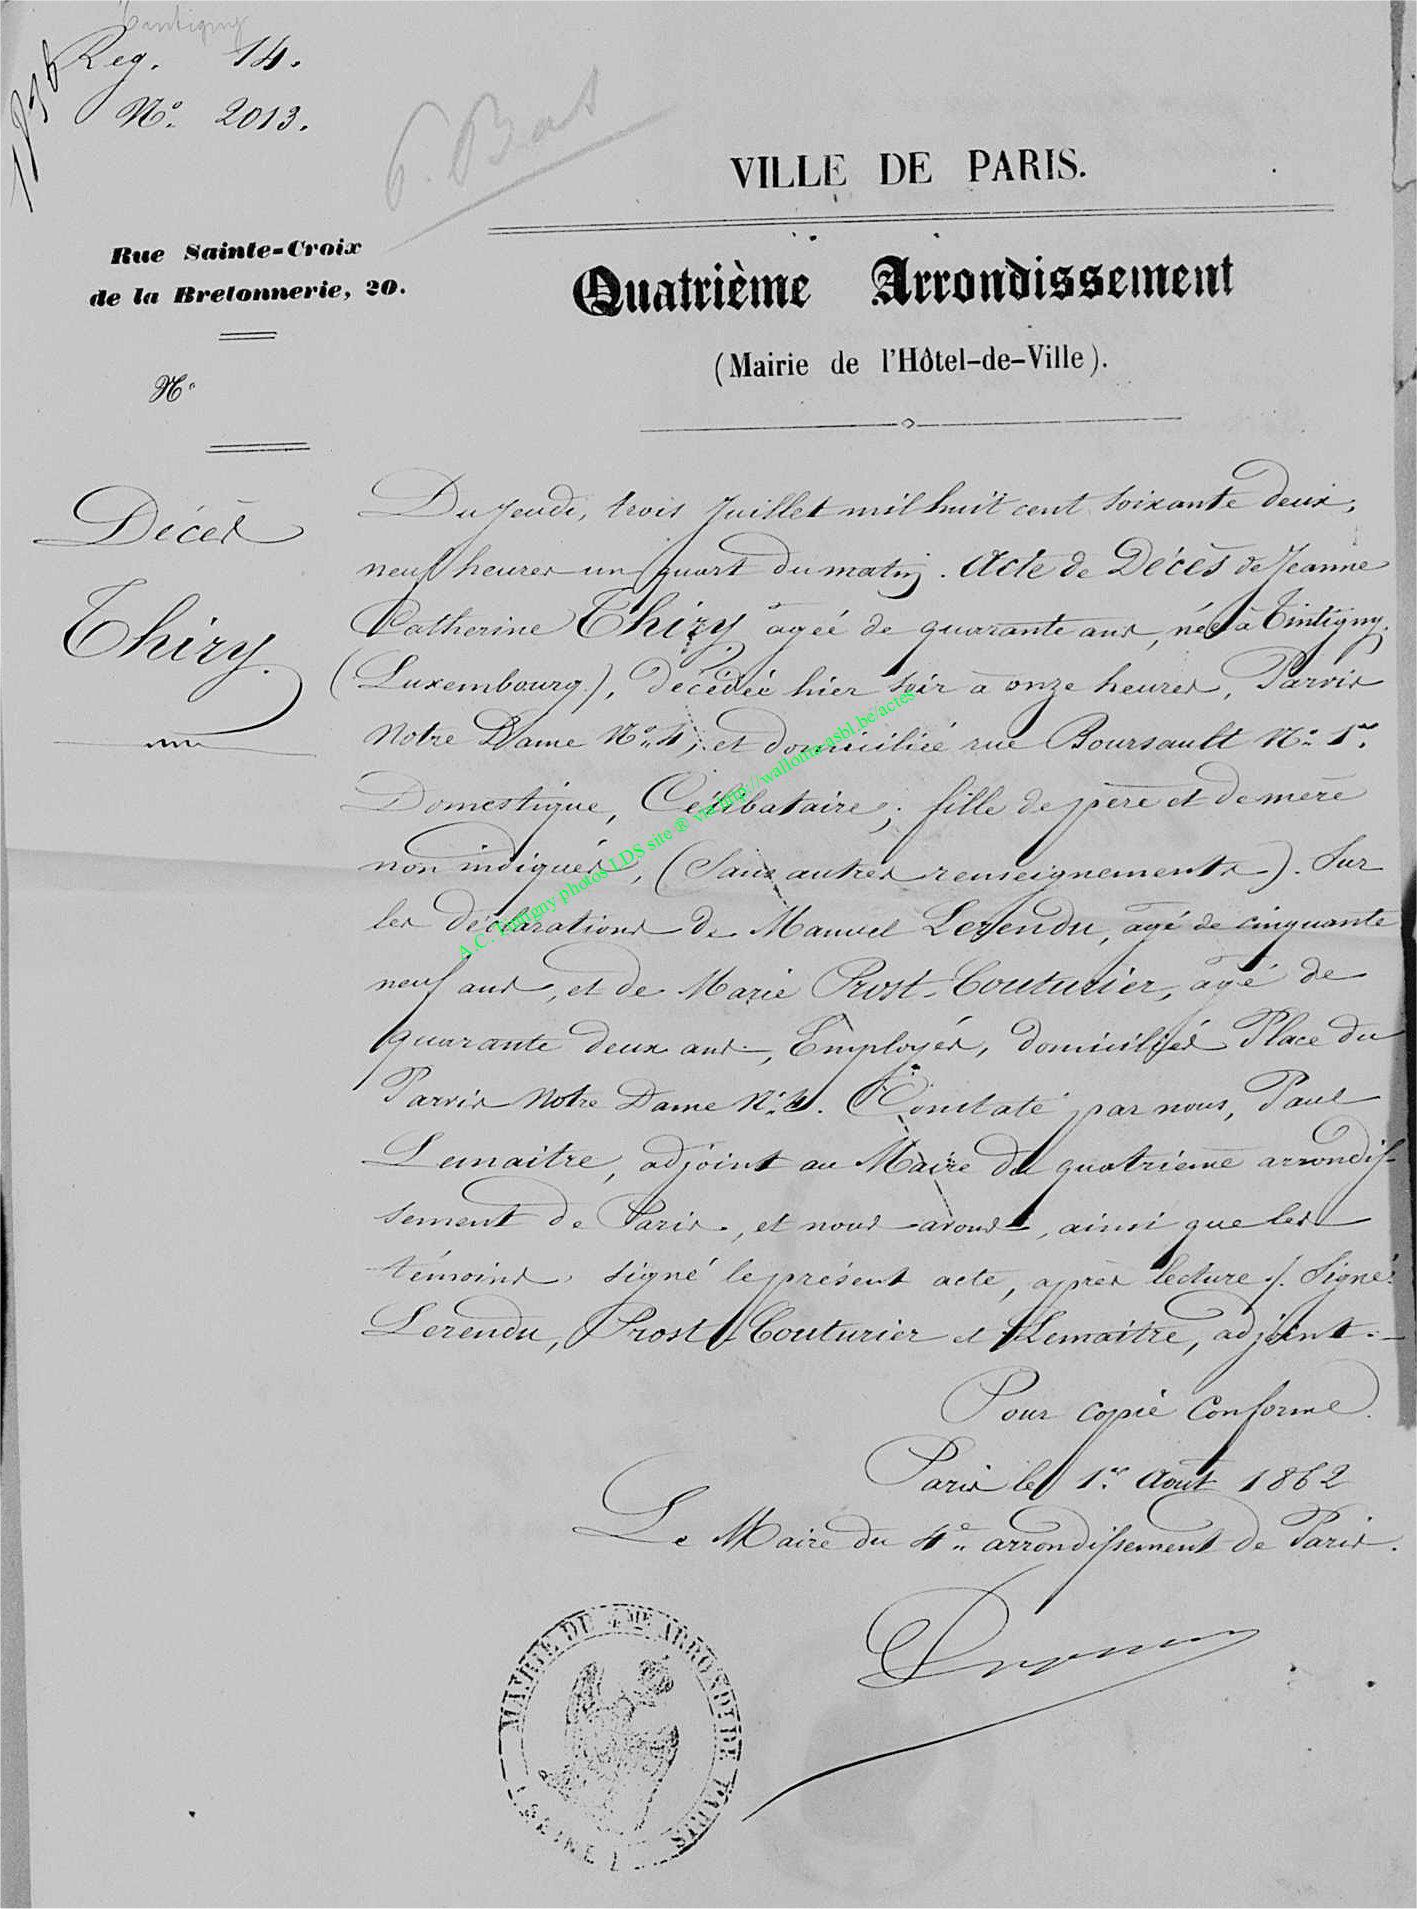 Tintigny
Reg. 14.
Nº 2013.
P. Bas
VILLE DE PARIS.
Rue Sainte-Croix
de la Bretonnerie, 20.
Quatrième Arrondissement
(Mairie de l'Hôtel-de-Ville).
Nº
Décès
Thiry.
Du Jeudi, trois Juillet mil huit cent soixante deux,
neuf heures un quart du matin. Acte de Décès de Jeanne
Catherine Thiry agée de quarante ans, née à Tintigny
(Luxembourg), décédée hier soir à onze heures, Parvis
Notre Dame Nº 4, et domiciliée rue Boursault Nº 1er.
Domestique, Célibataire; fille de père et de mère
non indiqués, (Sans autres renseignements). Sur
les déclarations de Manuel Lerendu, agé de cinquante
neuf ans, et de Marie Prost-Couturier, agé de
quarante deux ans, Employés, domiciliés Place du
Parvis Notre Dame Nº 4. Constaté par nous, Paul
Lemaitre, adjoint au Maire du quatrième arrondis-
sement de Paris, et nous avons, ainsi que les
témoins, signé le présent acte, après lecture /. Signé:
Lerendu, Prost-Couturier et Lemaitre, adjoint.
Pour copie conforme.
Paris le 1er Aout 1862
Le Maire du 4e arrondissement de Paris.
MAIRIE DU 4ME ARRONDt DE PARIS
(SEINE)
A.C. Tintigny photos LDS site ® via http://wallonia-asbl.be/actes